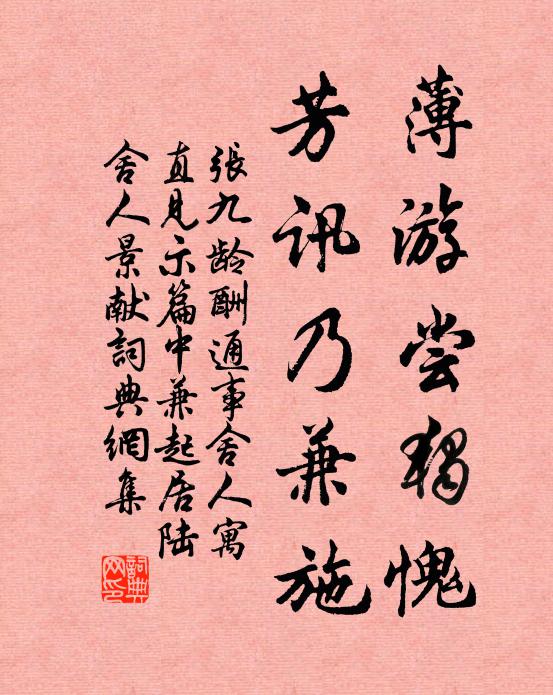 薄游尝獨愧
芳訊乃兼施
張九龄酬通事舍人寓
直見示篇中兼起居陆
舍人景献詞典網集
詞典网印